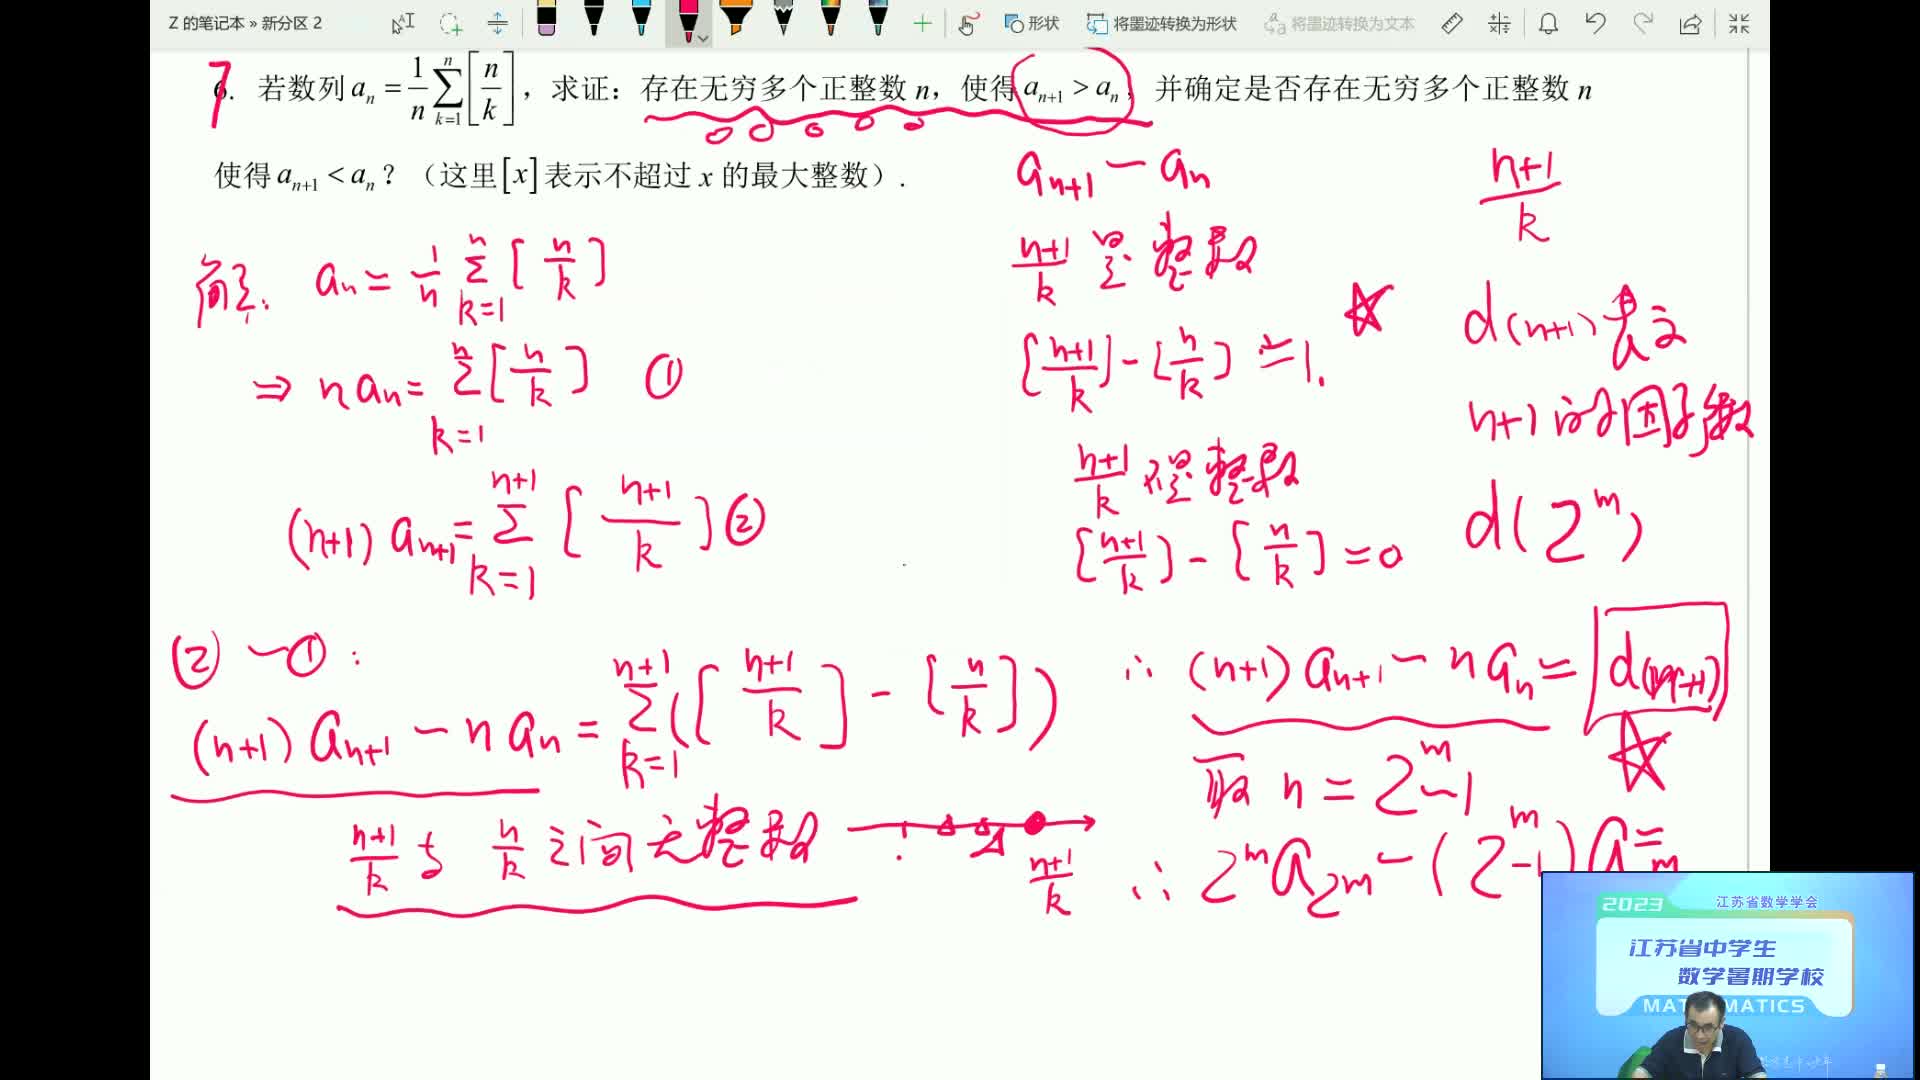 Z 的笔记本 » 新分区 2
形状
将墨迹转换为形状
将墨迹转换为文本
7
6. 若数列 a_n = \frac{1}{n} \sum_{k=1}^{n} [\frac{n}{k}]，求证：存在无穷多个正整数 n，使得 a_{n+1} > a_n，并确定是否存在无穷多个正整数 n
使得 a_{n+1} < a_n？（这里[x]表示不超过 x 的最大整数）.
解: a_n = \frac{1}{n} \sum_{k=1}^{n} [\frac{n}{k}]
⇒ n a_n = \sum_{k=1}^{n} [\frac{n}{k}] ①
(n+1) a_{n+1} = \sum_{k=1}^{n+1} [\frac{n+1}{k}] ②
② - ① :
(n+1) a_{n+1} - n a_n = \sum_{k=1}^{n+1} ([\frac{n+1}{k}] - [\frac{n}{k}])
\frac{n+1}{k} 与 \frac{n}{k} 之间无整数
\frac{n+1}{k}
a_{n+1} - a_n
\frac{n+1}{k} 是整数
[\frac{n+1}{k}] - [\frac{n}{k}] = 1.
\frac{n+1}{k} 不是整数
[\frac{n+1}{k}] - [\frac{n}{k}] = 0
\frac{n+1}{k}
d(n+1) 表示
n+1 的因子数
d(2^m)
∴ (n+1) a_{n+1} - n a_n = d(n+1)
取 n = 2^m - 1
∴ 2^m a_{2^m} - (2^m - 1) a =
2023
江苏省数学学会
江苏省中学生
数学暑期学校
MATHEMATICS